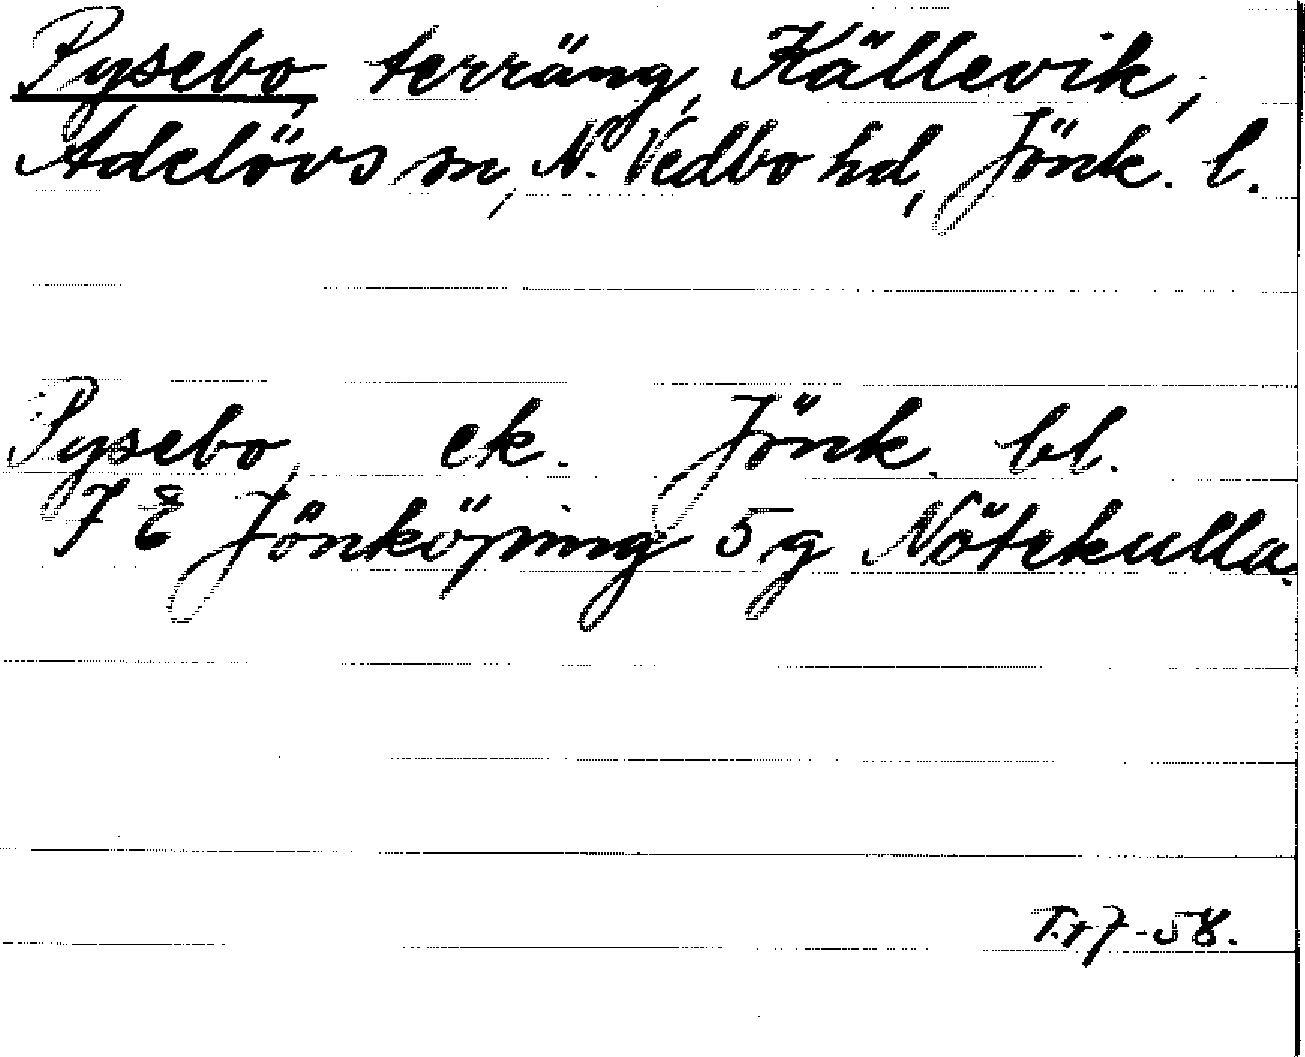 Pysebo, terräng, Källevik,
Adelövs sn, N. Vedbo hd, Jönk. l.
Pysebo, ek. Jönk. bl.
7 E Jönköping 5 g Nötekulla.
T.r 7-58.